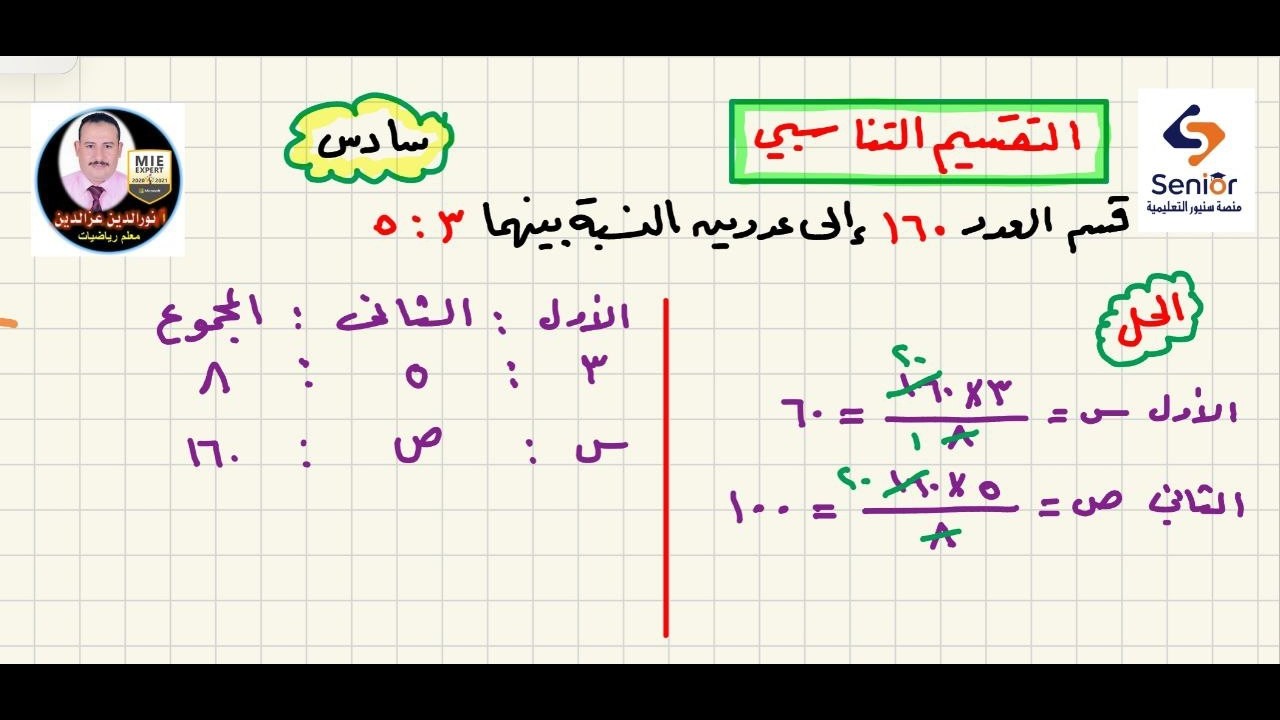 التقسيم التناسبي
سادس
Senior
منصة سنيور التعليمية
MIE
EXPERT
2020 2021
Microsoft
أ نورالدين عزالدين
معلم رياضيات
قسم العدد ١٦٠ إلى عددين النسبة بينهما ٣ : ٥
الحل
الأول س = ٣ × ١٦٠ / ٨ = ٦٠
٢٠
١
الثاني ص = ٥ × ١٦٠ / ٨ = ١٠٠
٢٠
الأول : الثانى : المجموع
٣ : ٥ : ٨
س : ص : ١٦٠